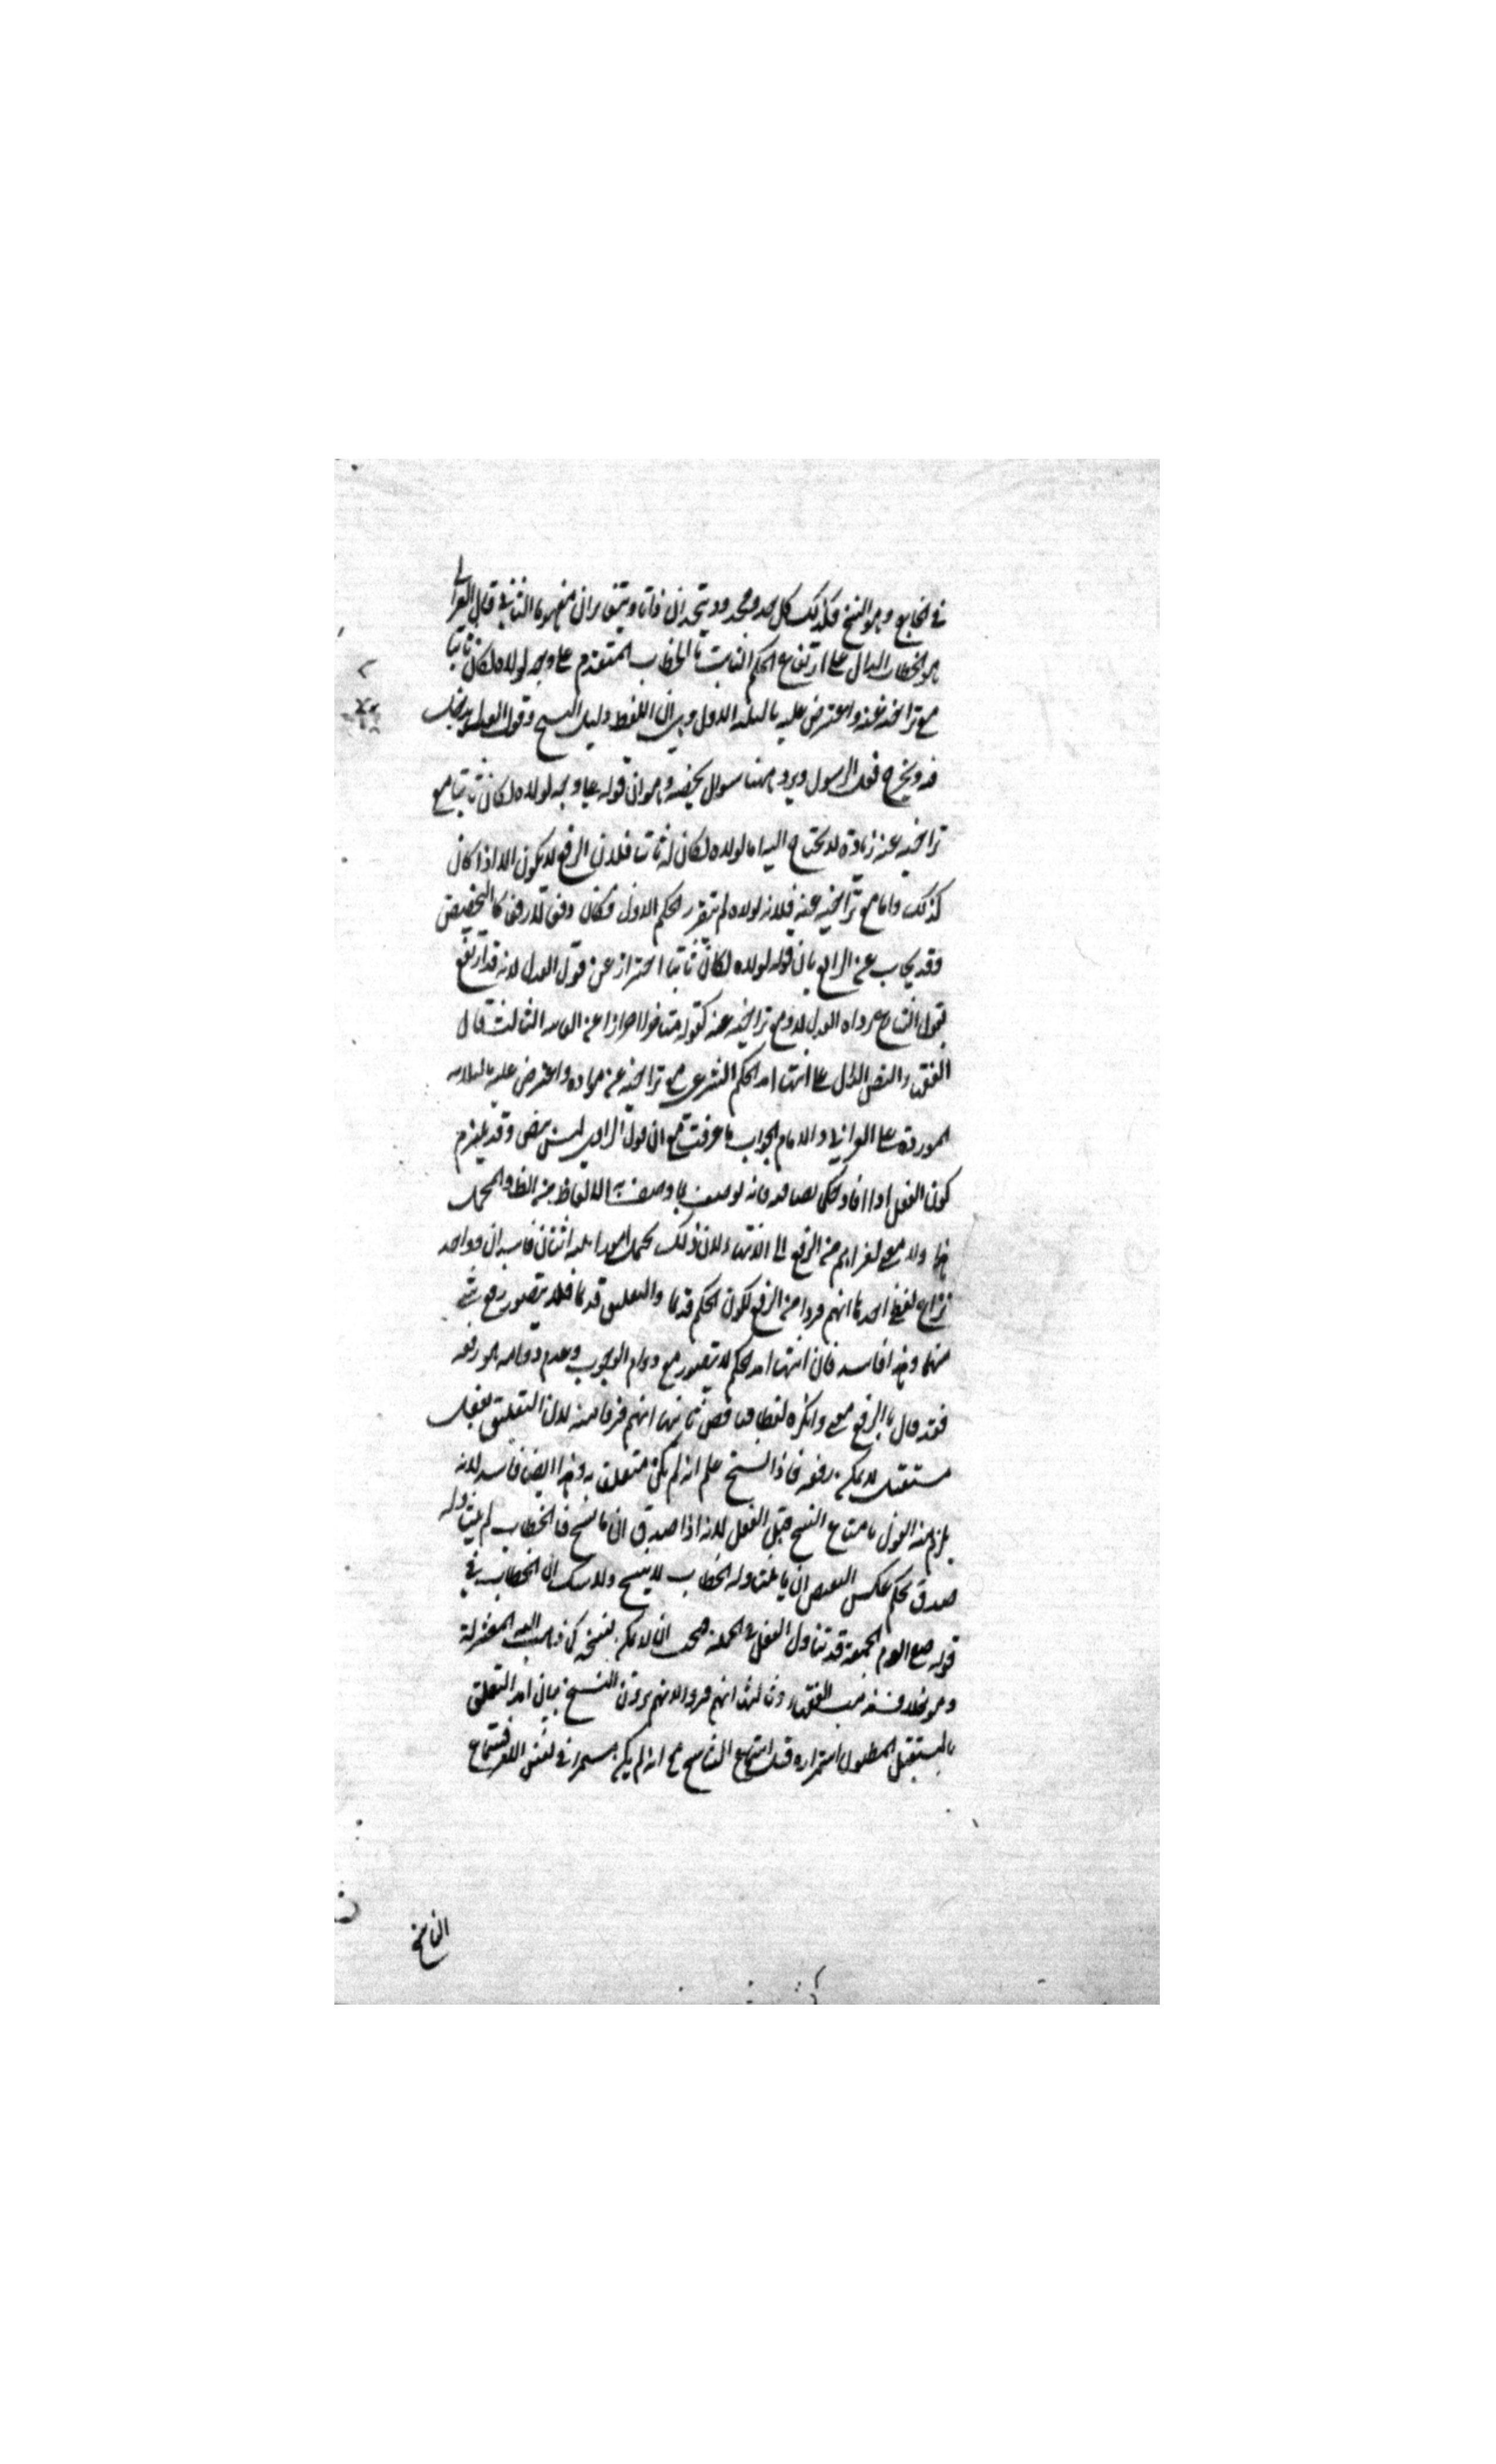 في الخارج وهو النسخ فكذلك كل حد ومحدود يتحدان ذاتا ويتغايران مفهوما الثاني قال الغزالي
هو الخطاب الدال على ارتفاع الحكم الثابت بالخطاب المتقدم على وجه لولاه لكان ثابتا
مع تراخيه عنه واعترض عليه بالثلاثة الاول وهي ان اللفظ دليل النسخ وقول العدل يدخل
فيه ويخرج فعل الرسول ويرد ههنا سوال يخصه وهو ان قوله على وجه لولاه لكان ثابتا مع
تراخيه عنه زيادة لا يحتاج اليها اما لولاه لكان ثابتا فلان الرفع لا يكون الا اذا كان
كذلك واما مع تراخيه عنه فلانه لولاه لم يتقرر الحكم الاول فكان دفعا لا رفعا كالتخصيص
فقد يجاب عن الرابع بان قوله لولاه لكان ثابتا احتراز عن قول العدل لانه قد ارتفع
بقول الشارع رواه العدل ام لا ومع تراخيه عنه كقوله متاخرا احترازا عن الغاية الثالث قال
الفقهاء النص الدال على انتهاء امد الحكم الشرعي مع تراخيه عن مورده واعترض عليه بالثلاثة
الموردة على الغزالي والامام الجواب ما عرفت مع ان قول الراوي ليس بنص وقد يلتزم
كون الفعل اذا افاد نصا فانه يوصف بما يوصف به الالفاظ من الظاهر والمجمل
هذا ولا معنى لفرارهم من الرفع الى الانتهاء لان ذلك يحتمل امورا ثلاثة اثنان فاسدان وواحد
نزاع لفظي احدها انهم فروا من الرفع لكون الحكم قديما والتعلق قديما فلا يتصور رفع شيء
منهما وهذا فاسد فان انتهاء امد الحكم لا يتصور مع دوام الوجوب وعدم دوامه هو رفعه
فقد قال بالرفع معنى وانكره لفظا فتناقض ثانيها انهم فروا منه لان التعليق بفعل
مستقبل لا يمكن رفعه فاذا نسخ علم انه لم يكن متعلقا به وهذا ايضا فاسد لانه
يلزم منه القول بامتناع النسخ قبل الفعل لانه اذا صدق ان ما نسخ فالخطاب لم يتناوله
صدق بحكم عكس النقيض ان ما يتناوله الخطاب لا ينسخ ولا شك ان الخطاب في
قوله صم يوم الجمعة قد تناول الفعل في الجملة فيجب ان لا يمكن نسخه كما ذهب اليه المعتزلة
وهو خلاف مذهب الفقهاء وثالثها انهم فروا لانهم يرون النسخ بيان امد التعلق
بالمستقبل المظنون استمراره قبل سماع الناسخ مع انه لم يكن مستمرا في نفس الامر فسماع
الناسخ